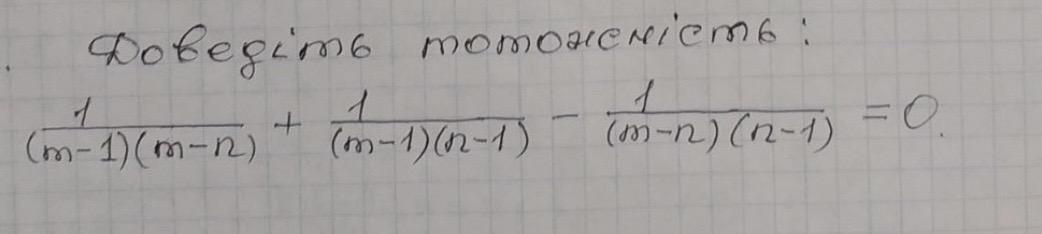 Доведіть тотожність:
1/((m-1)(m-n)) + 1/((m-1)(n-1)) - 1/((m-n)(n-1)) = 0.